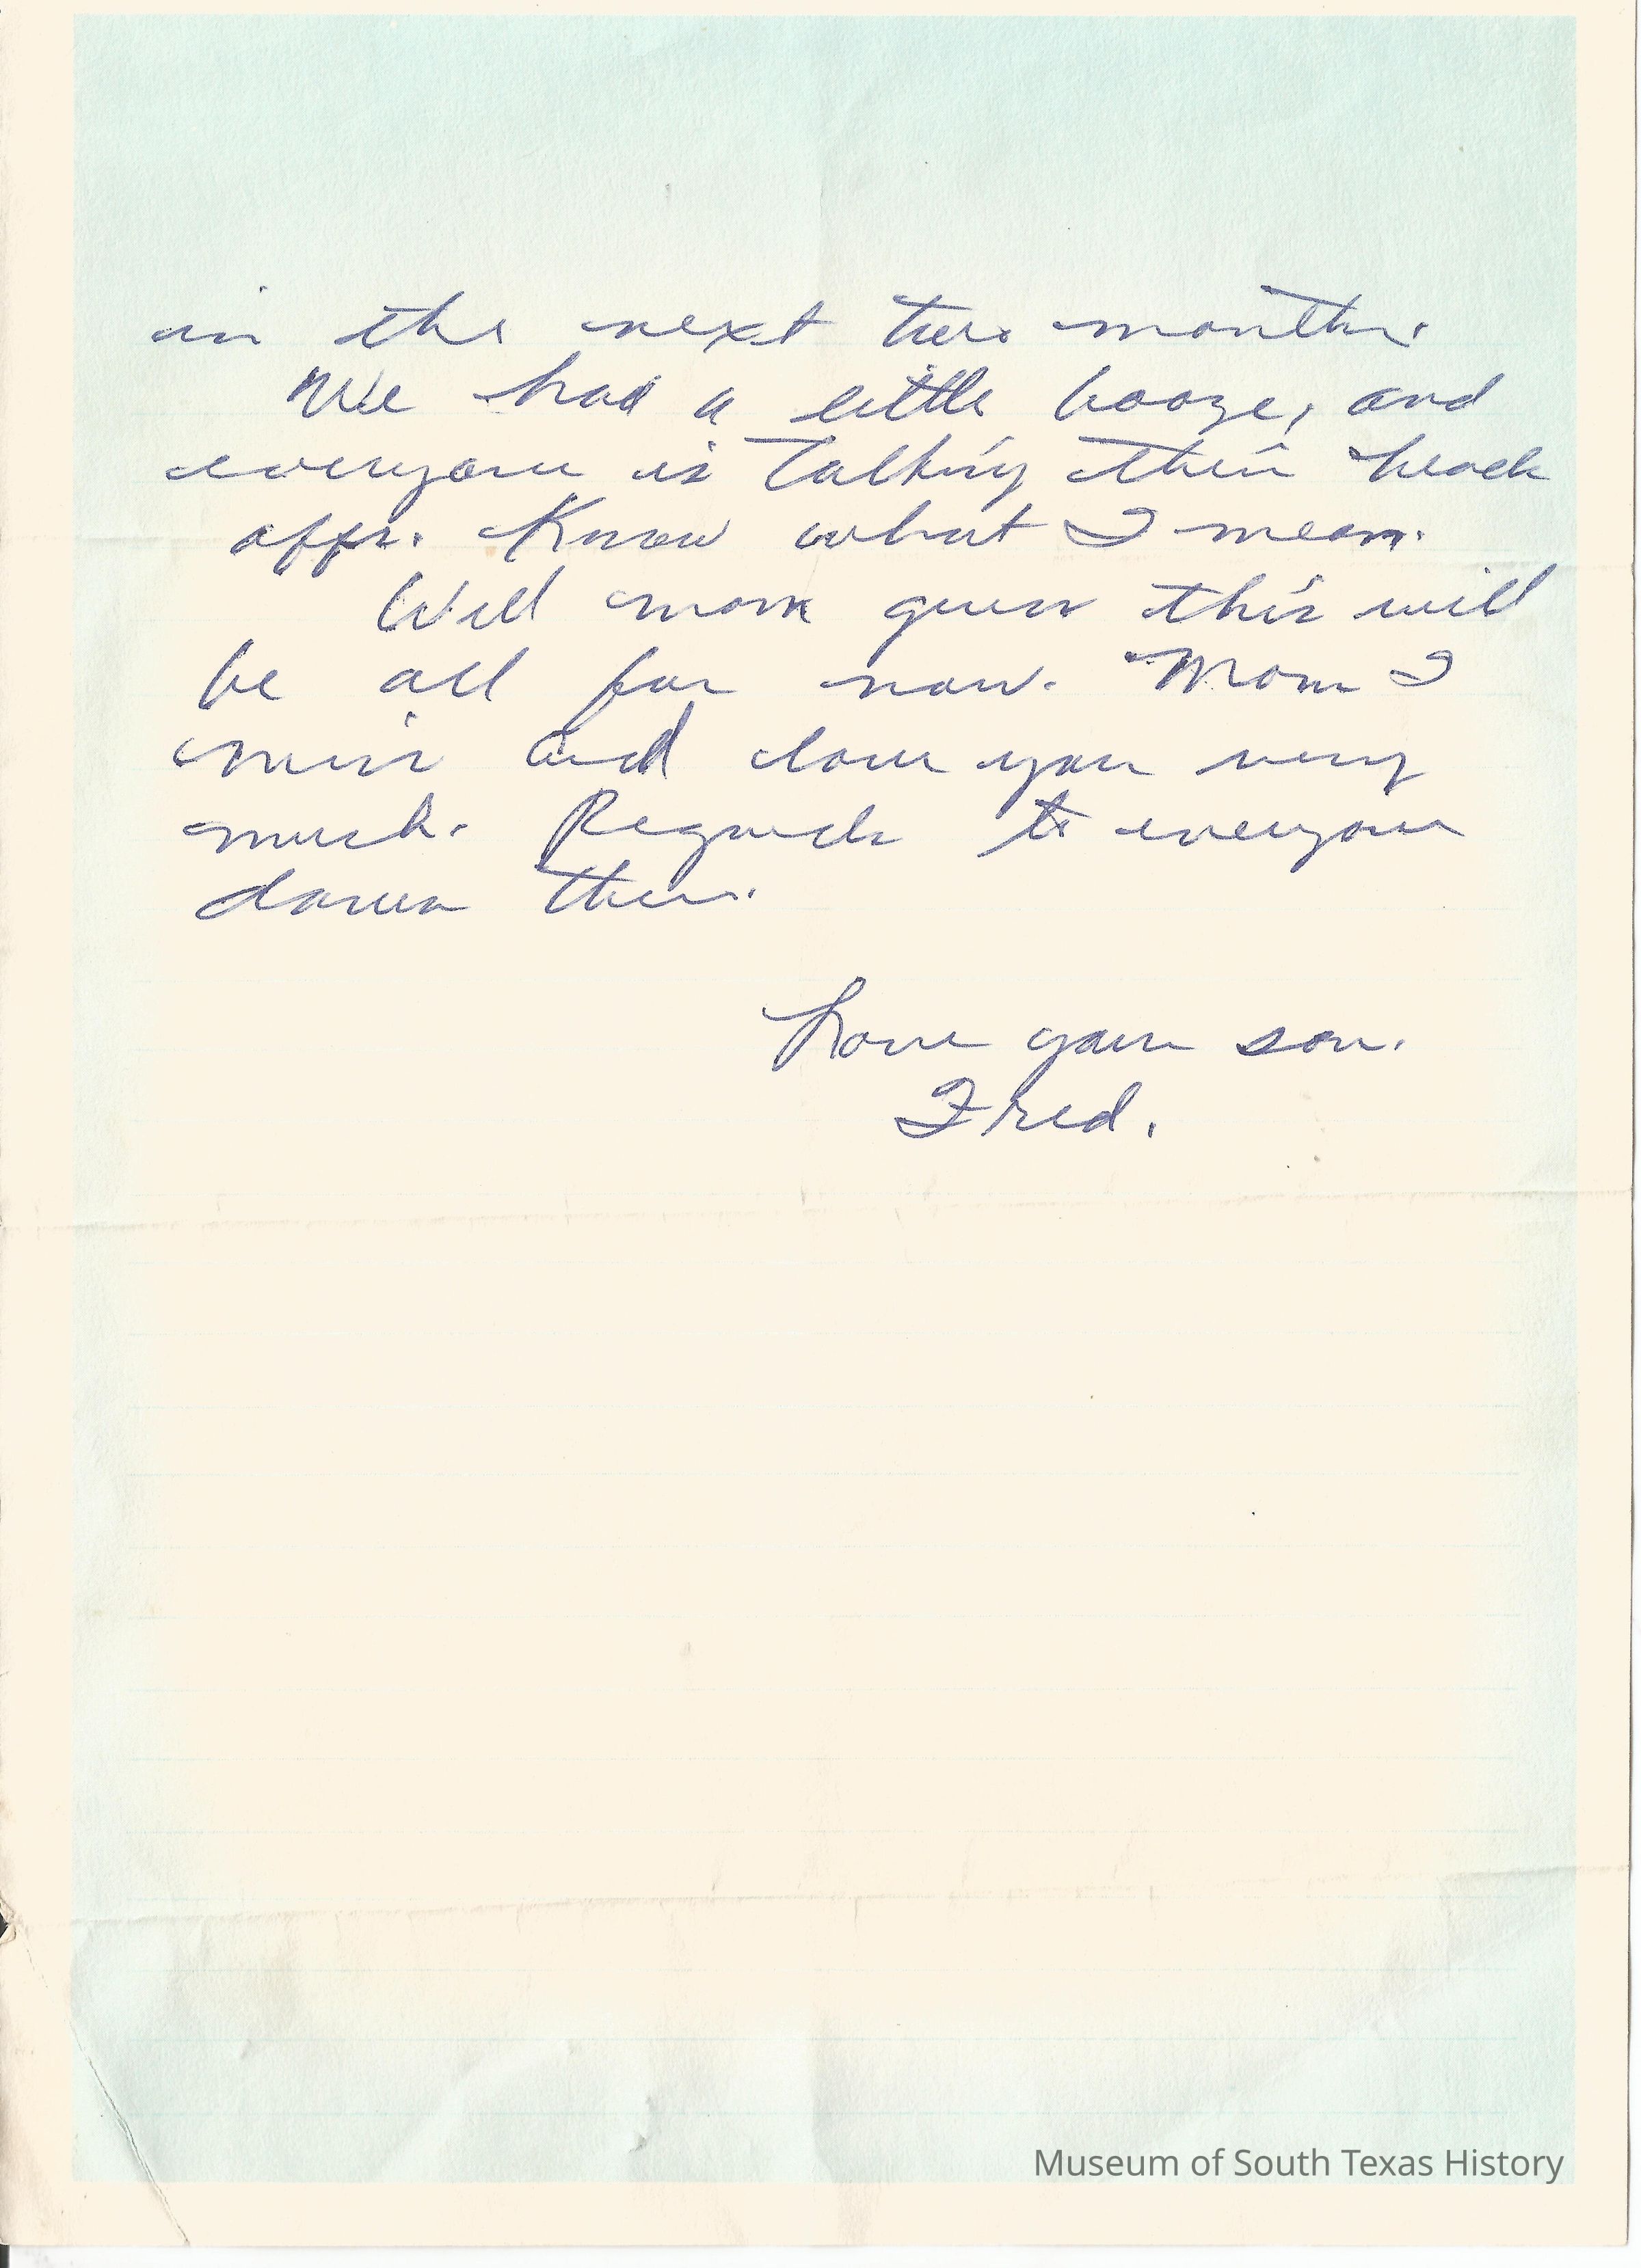 in the next two months.
We had a little booze, and
everyone is talking their heads
offs. Know what I mean.
Well mom guess this will
be all for now. Mom I
miss and love you very
much. Regards to everyone
down there.
Love your son.
Fred.
Museum of South Texas History